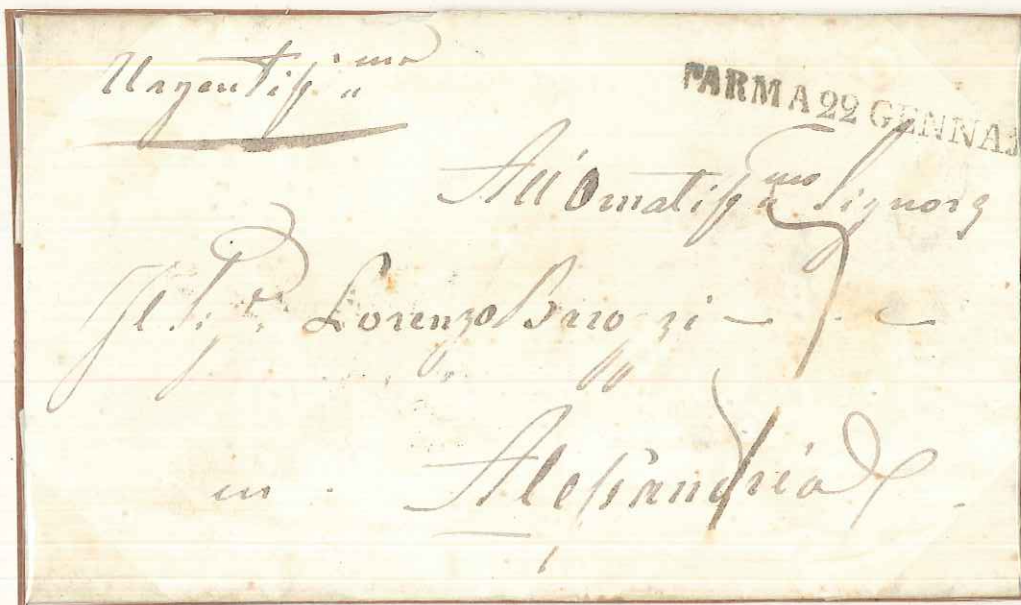 Urgentissmo
PARMA 22 GENNAJ
All'Ornatissmo Signore
Il Sigr Lorenzo Barozzi
in Alessandria